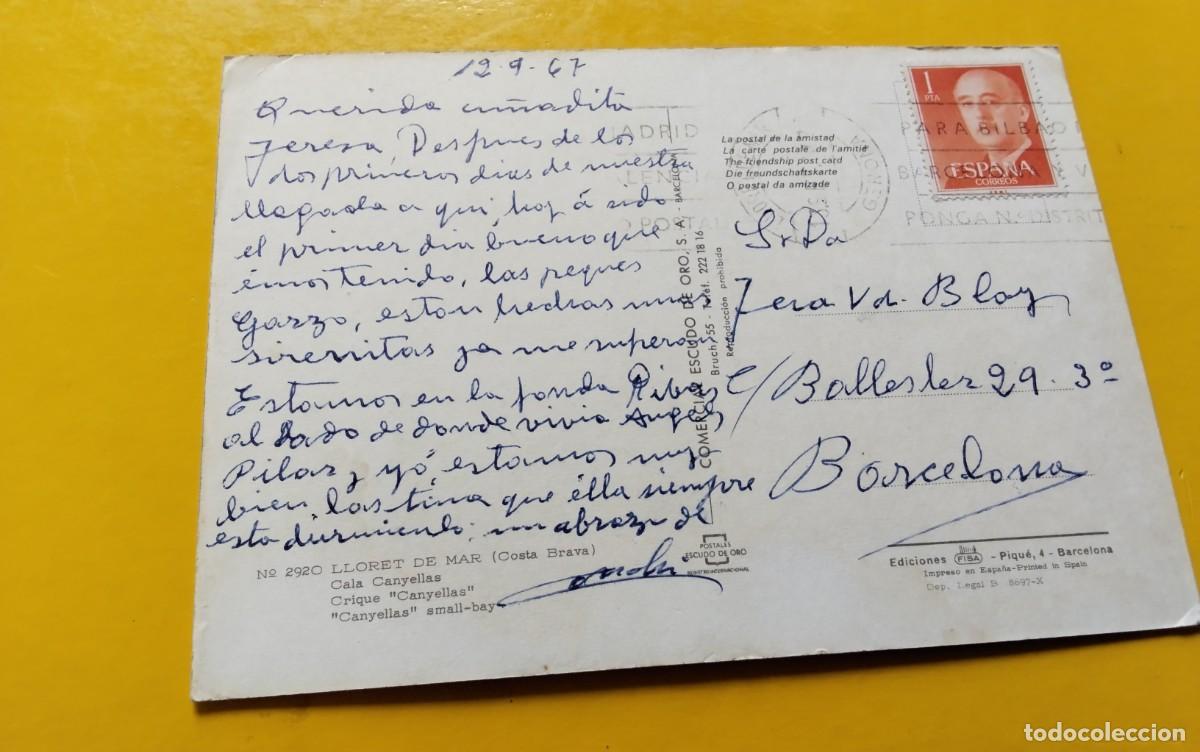 12-9-67
Querida cuñadita
Teresa, Despues de los
dos primeros dias de nuestra
llegada a qui, hoy á sido
el primer dia bueno que
émos tenido, las peques
Garzo, estan hechas unas
sirenitas ya me superan,
Estamos en la fonda Ribas
al lado de donde vivia Angeles
Pilar y yó estamos muy
bien, lastima que élla siempre
esta durmiendo; un abrazo de
Nº 2920 LLORET DE MAR (Costa Brava)
Cala Canyellas
Crique "Canyellas"
"Canyellas" small-bay
COMERCIAL ESCUDO DE ORO, S. A. - BARCELONA
Bruch, 55 - Teléf. 222 18 16
Reproducción prohibida
POSTALES
ESCUDO DE ORO
La postal de la amistad
La carte postale de l'amitié
The friendship post card
Die freundschaftskarte
O postal da amizade
MADRID
VALENCIA
POSTAL
GERONA
PARA BILBAO
PONGA N.º DISTRIT
1
PTA
ESPAÑA
CORREOS
SrDa
Tera Vd. Bloy
C/ Ballester 29. 3º
Barcelona
Ediciones FISA - Piqué, 4 - Barcelona
Impreso en España-Printed in Spain
Dep. Legal B 8697-X
todocoleccion